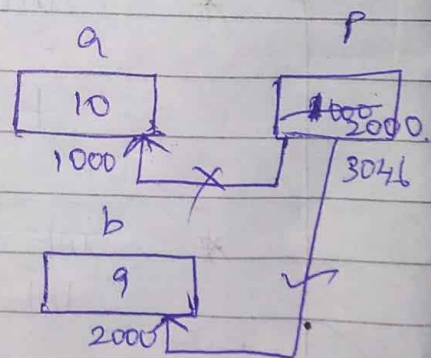 a
P
10
1000
2000
1000
3046
b
9
2000